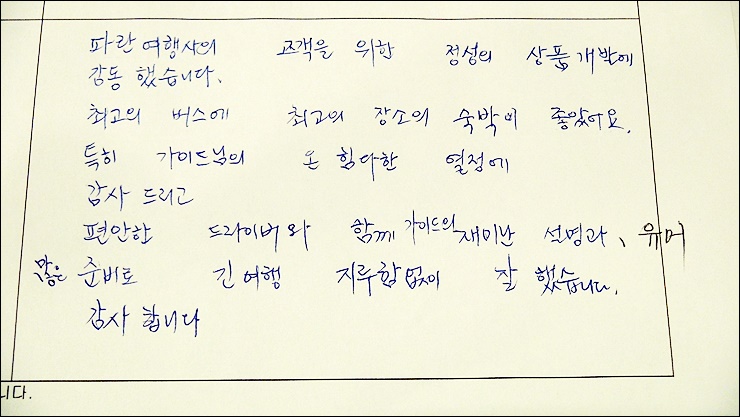 파란여행사의 고객을 위한 정성의 상품개발에
감동 했습니다.
최고의 버스에 최고의 장소의 숙박이 좋았어요.
특히 가이드님의 온 힘다한 열정에
감사 드리고
편안한 드라이버와 함께 가이드의 재미난 설명과, 유머
많은 준비로 긴여행 지루함없이 잘 했습니다.
감사 합니다
니다.